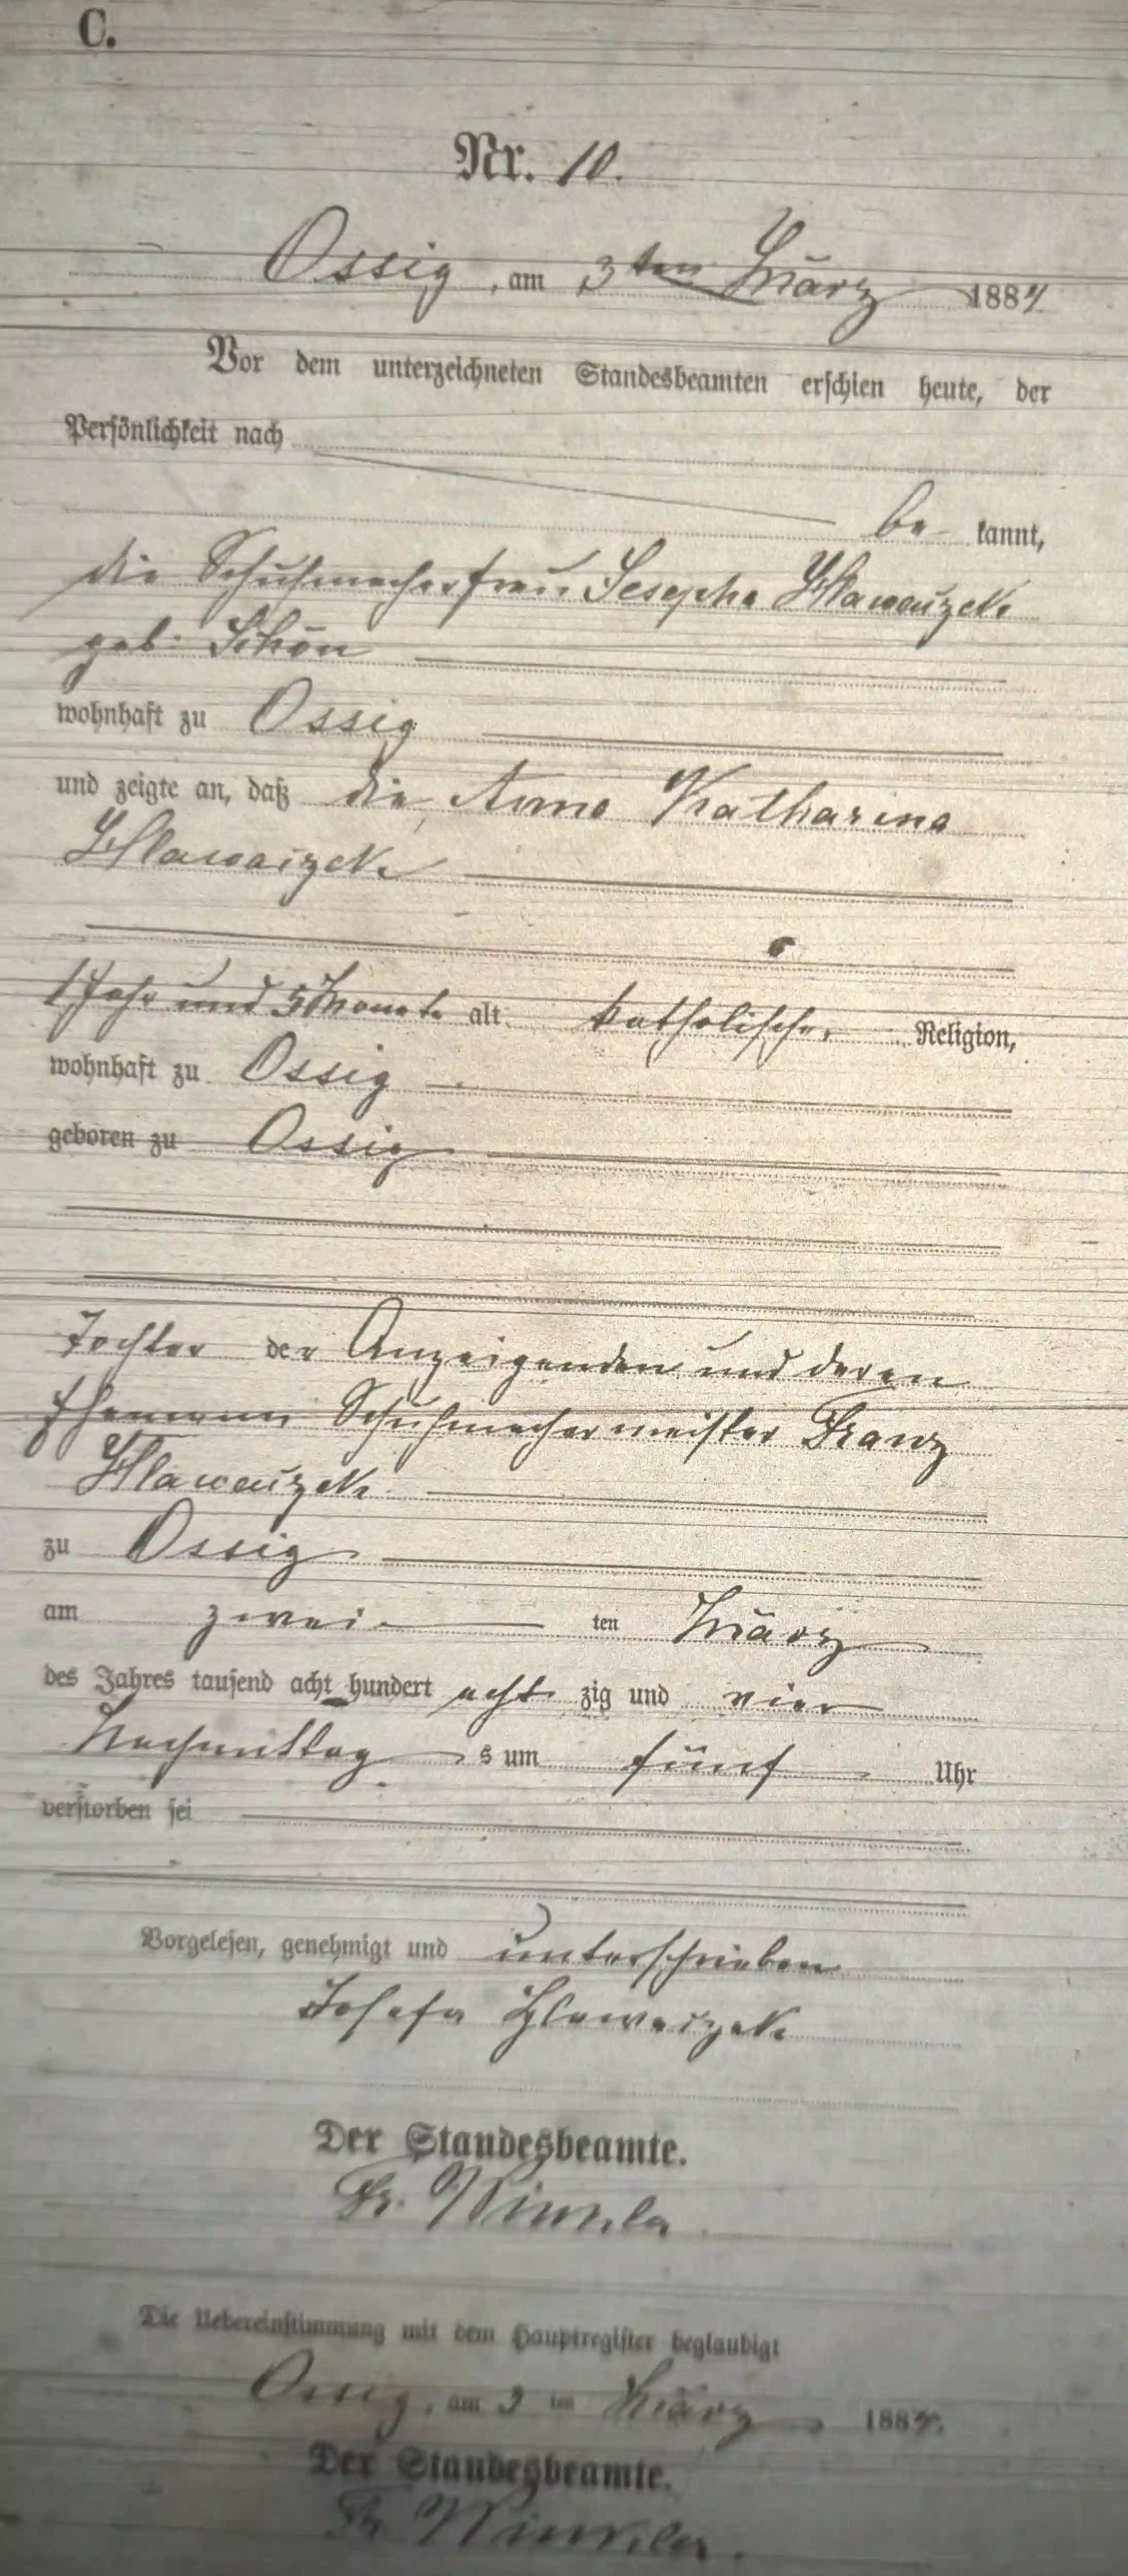 C.
Nr. 10.
Ossig, am 3ten März 1884
Vor dem unterzeichneten Standesbeamten erschien heute, der
Persönlichkeit nach
be kannt,
die Schuhmacherfrau Josepha Hlawaczek
geb. Schön
wohnhaft zu Ossig
und zeigte an, daß die Anna Katharina
Hlawaczek
1 Jahr und 5 Monate alt, katholischer Religion,
wohnhaft zu Ossig
geboren zu Ossig
Tochter der Anzeigenden und deren
Ehemann Schuhmachermeister Franz
Hlawaczek
zu Ossig
am zwei ten März
des Jahres tausend acht hundert acht zig und vier
Nachmittag s um fünf Uhr
verstorben sei
Vorgelesen, genehmigt und unterschrieben
Josefa Hlawaczek
Der Standesbeamte.
Fr. Winkler
Die Uebereinstimmung mit dem Hauptregister beglaubigt
Ossig, am 3 ten März 1884.
Der Standesbeamte.
Fr. Winkler.